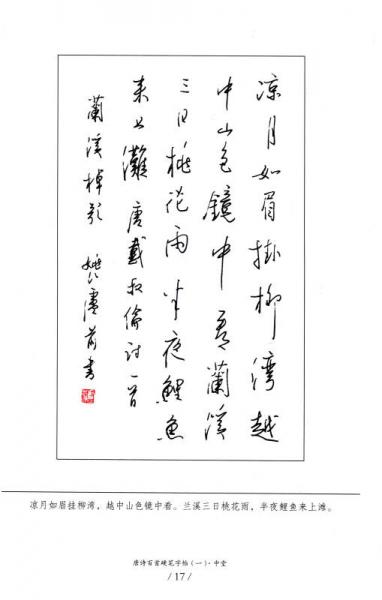 凉月如眉掛柳灣越
中山色鏡中看蘭溪
三日桃花雨半夜鯉魚
来上灘 唐戴叔倫詩一首
蘭溪棹歌 姚 书
凉月如眉挂柳湾，越中山色镜中看。兰溪三日桃花雨，半夜鲤鱼来上滩。
唐诗百首硬笔字帖(一)·中堂
/17/